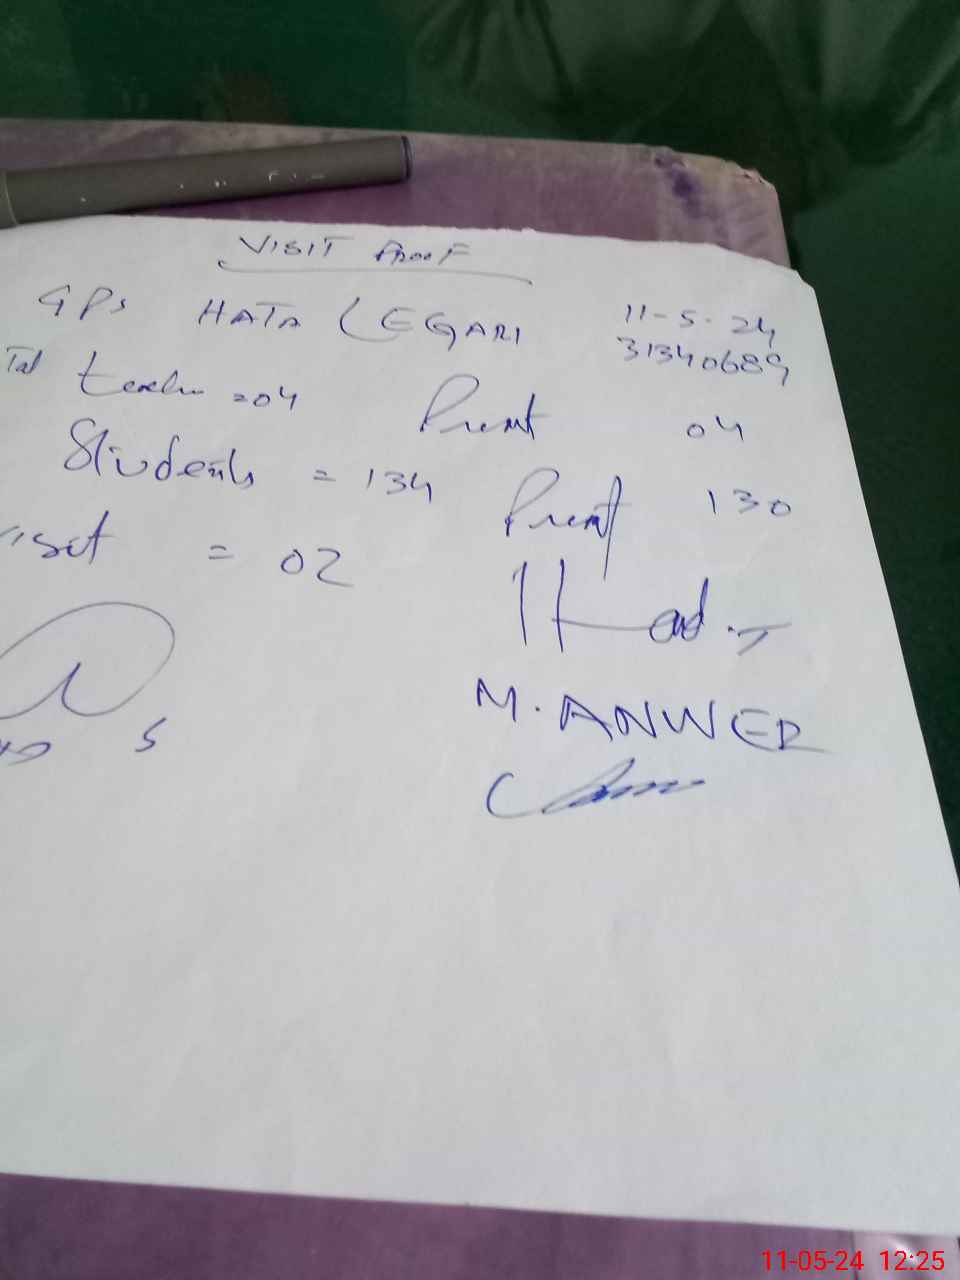 VISIT PROOF
GPS HATA LEGARI 11-5-24
31340689
teacher =04 Present 04
Students = 134 Present 130
visit = 02
Head.T
M. ANWER
11-05-24 12:25